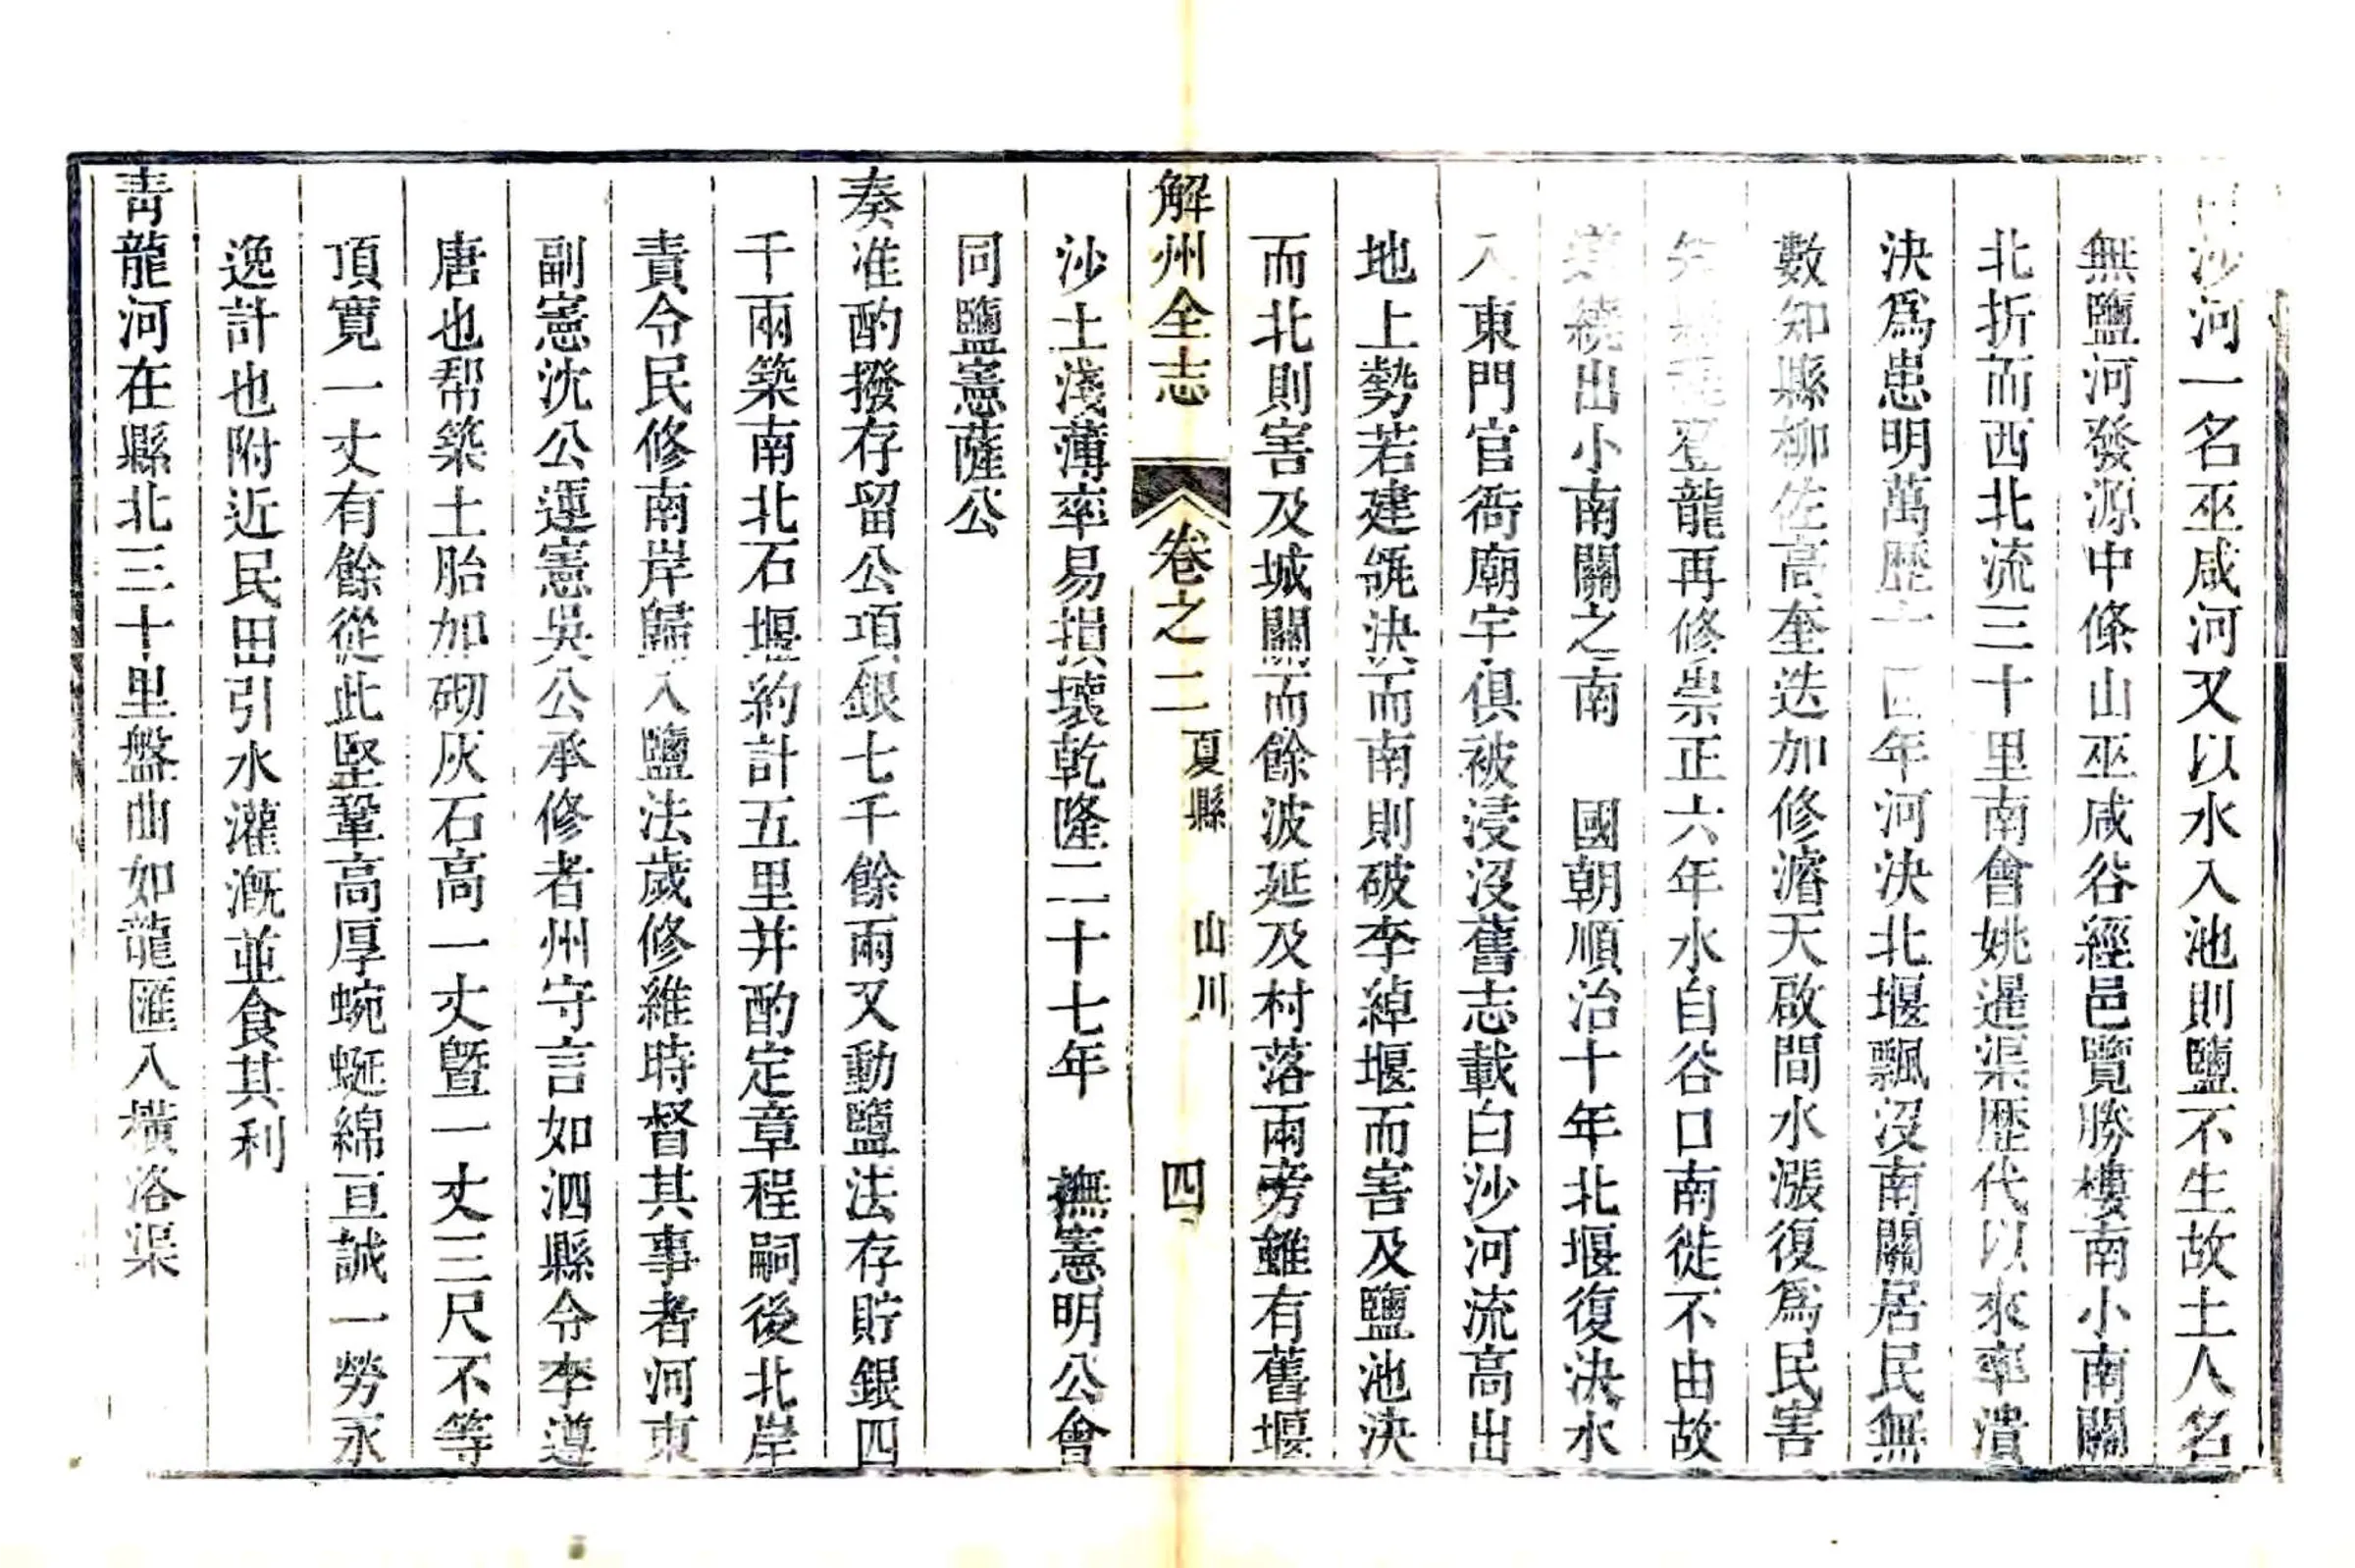 沙河一名巫咸河又以水入池則鹽不生故土人名
無鹽河發源中條山巫咸谷經邑覽勝樓南小南關
北折而西北流三十里南會姚暹渠歷代以來率潰
決爲患明萬歷十四年河決北堰飄沒南關居民無
數知縣柳佐高奎迭加修濬天啟間水漲復爲民害
登龍再修崇正六年水自谷口南徙不由故
繞出小南關之南 國朝順治十年北堰復決水
入東門官衙廟宇俱被浸沒舊志載白沙河流高出
地上勢若建瓴決而南則破李綽堰而害及鹽池決
而北則害及城關而餘波延及村落兩旁雖有舊堰
解州全志 卷之二 夏縣 山川 四
沙土淺薄率易損壞乾隆二十七年 撫憲明公會
同鹽憲薩公
奏准酌撥存留公項銀七千餘兩又動鹽法存貯銀四
千兩築南北石堰約計五里并酌定章程嗣後北岸
責令民修南岸歸入鹽法歲修維時督其事者河東
副憲沈公運憲吳公承修者州守言如泗縣令李遵
唐也帮築土胎加砌灰石高一丈暨一丈三尺不等
頂寬一丈有餘從此堅鞏高厚蜿蜒綿亘誠一勞永
逸計也附近民田引水灌漑並食其利
靑龍河在縣北三十里盤曲如龍匯入橫洛渠